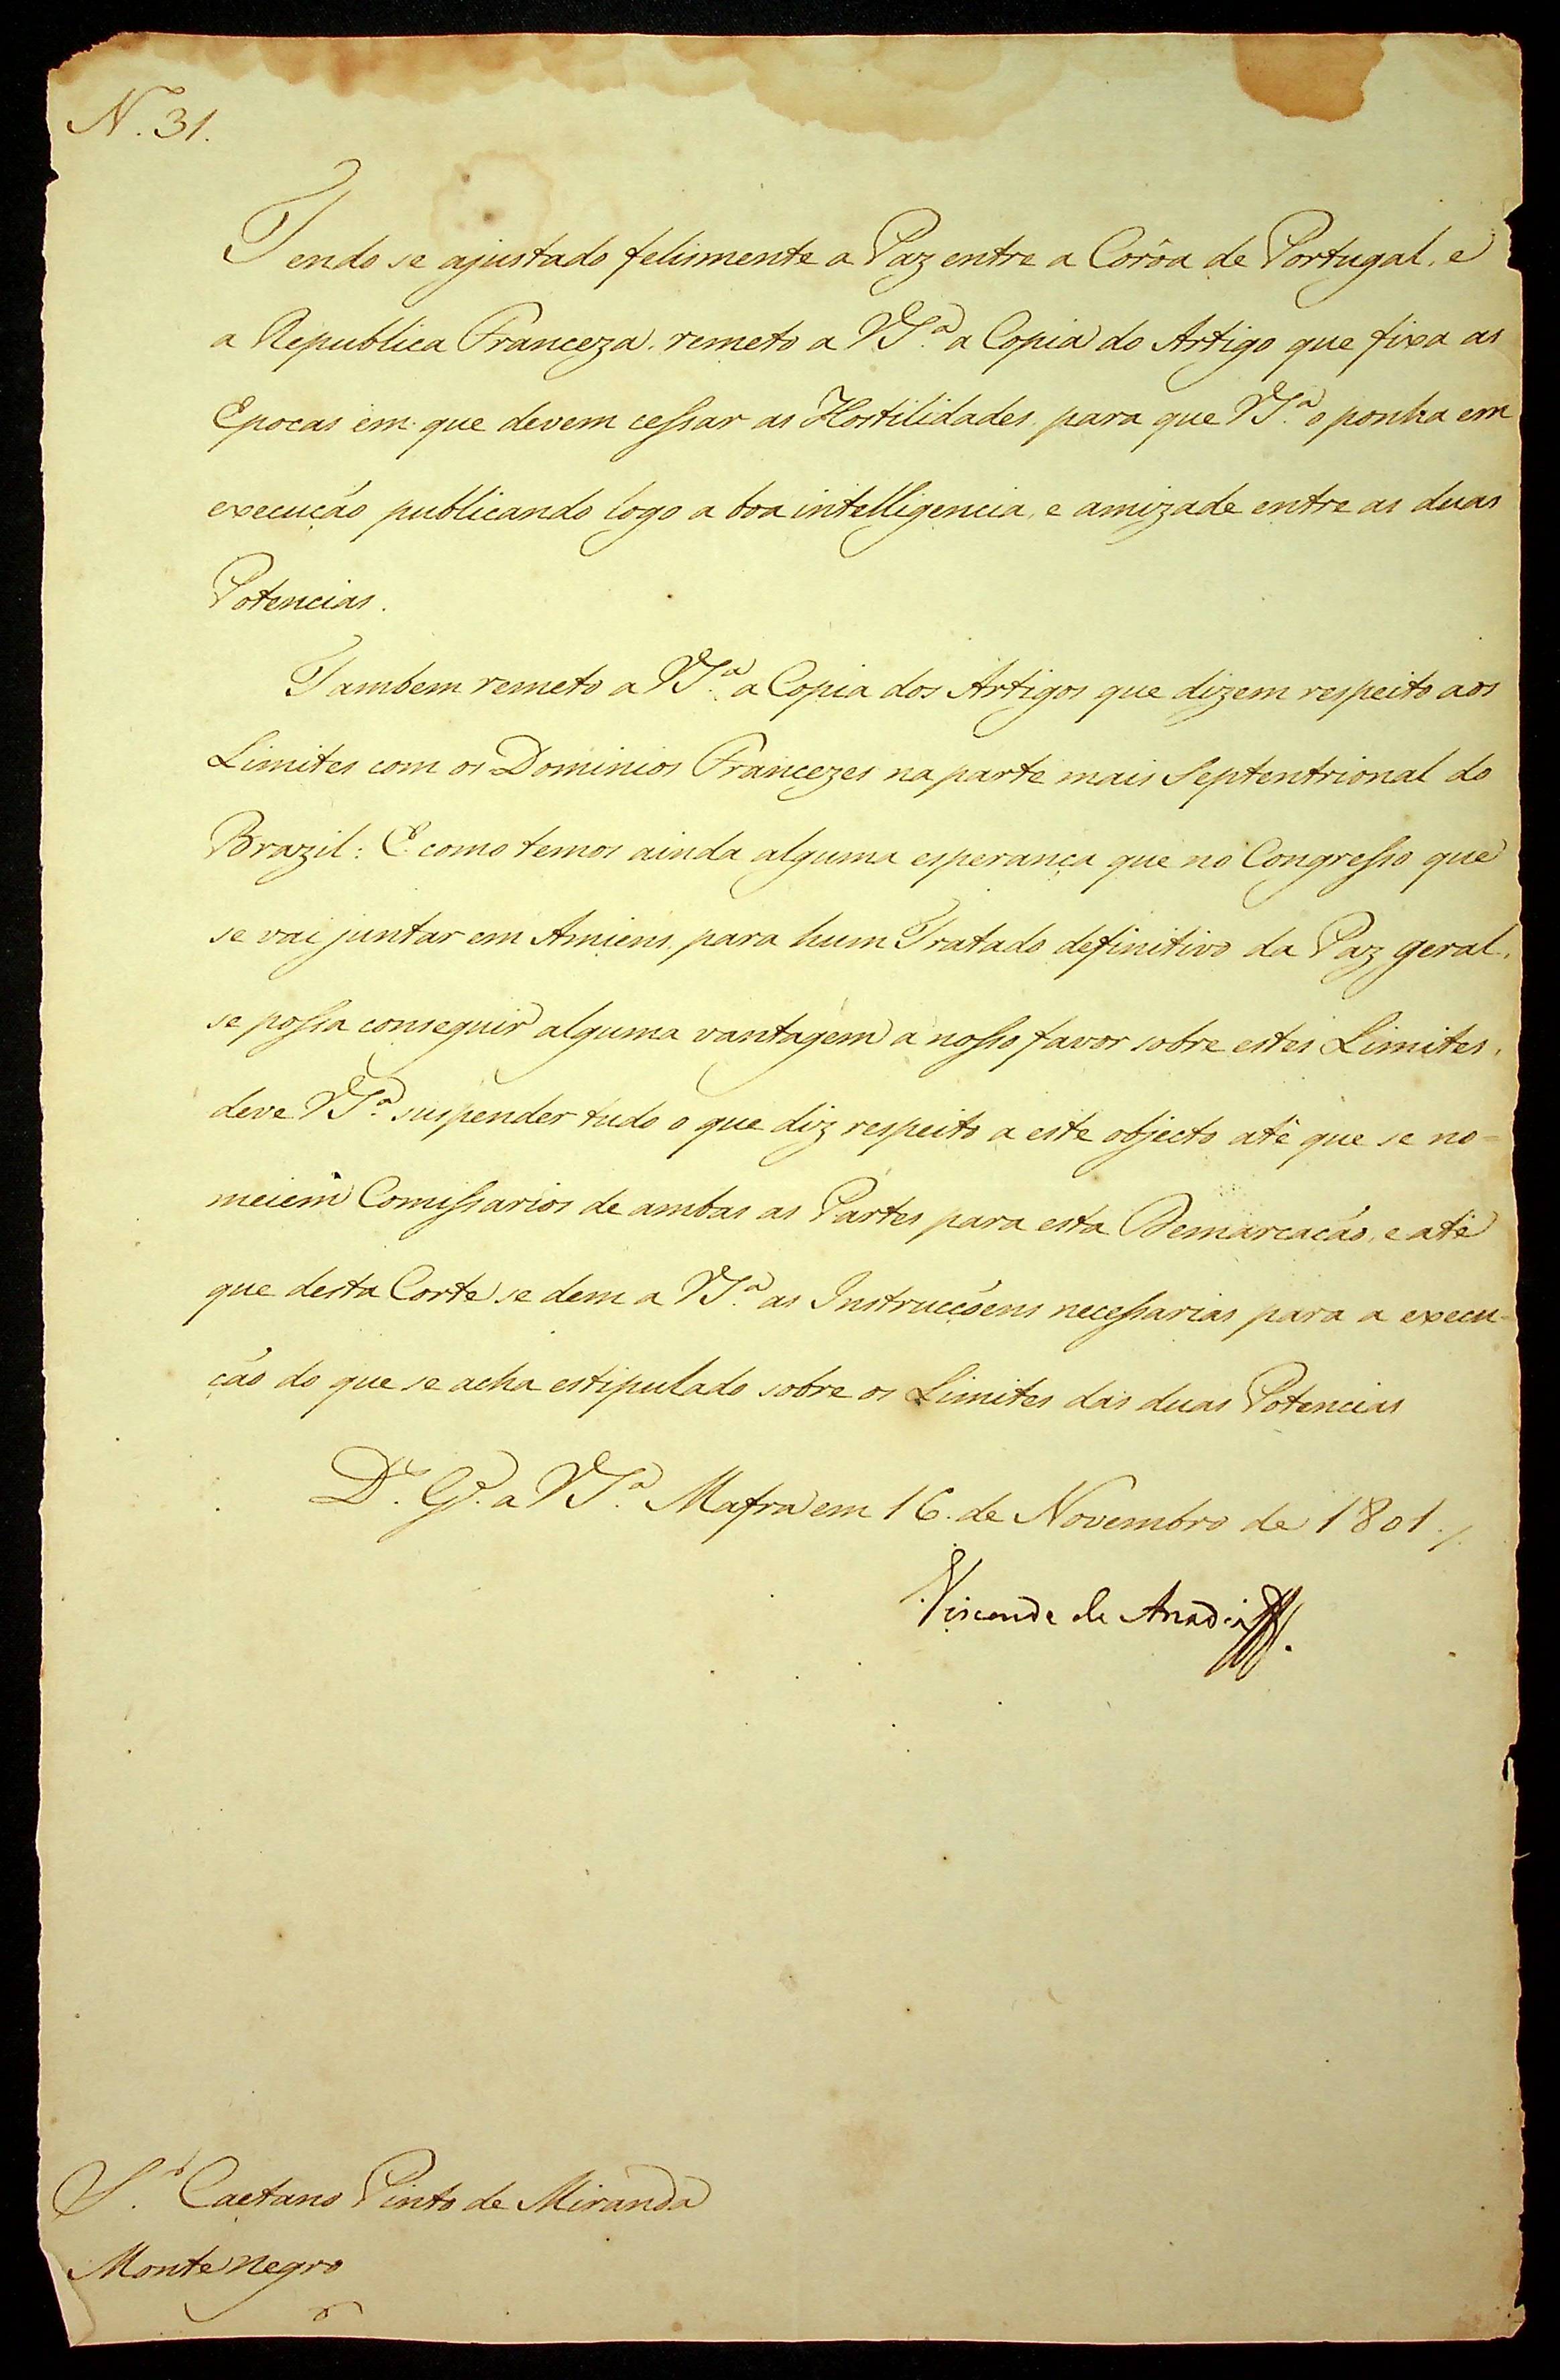 N. 31.
Tendo se ajustado felismente a Paz entre a Corôa de Portugal, e
a Republica Franceza, remeto a VS.ª a Copia do Artigo que fixa as
Epocas em que devem cessar as Hostilidades, para que VS.ª o ponha em
execução publicando logo a boa intelligencia, e amizade entre as duas
Potencias.
Tambem remeto a VS.ª a Copia dos Artigos que dizem respeito aos
Limites com os Dominios Francezes na parte mais Septentrional do
Brazil: E como temos ainda alguma esperança que no Congresso que
se vai juntar em Amiens, para hum Tratado definitivo da Paz geral,
se possa conseguir alguma vantagem a nosso favor sobre estes Limites,
deve VS.ª suspender tudo o que diz respeito a este objecto até que se no=
meiem Comissarios de ambas as Partes para esta Demarcação, e até
que desta Corte se dem a VS.ª as Instrucçoens necessarias para a execu=
ção do que se acha estipulado sobre os Limites das duas Potencias
D.s G.e a VS.ª Mafra em 16. de Novembro de 1801./.
Visconde de Anadia
S.r Caetano Pinto de Miranda
Montenegro